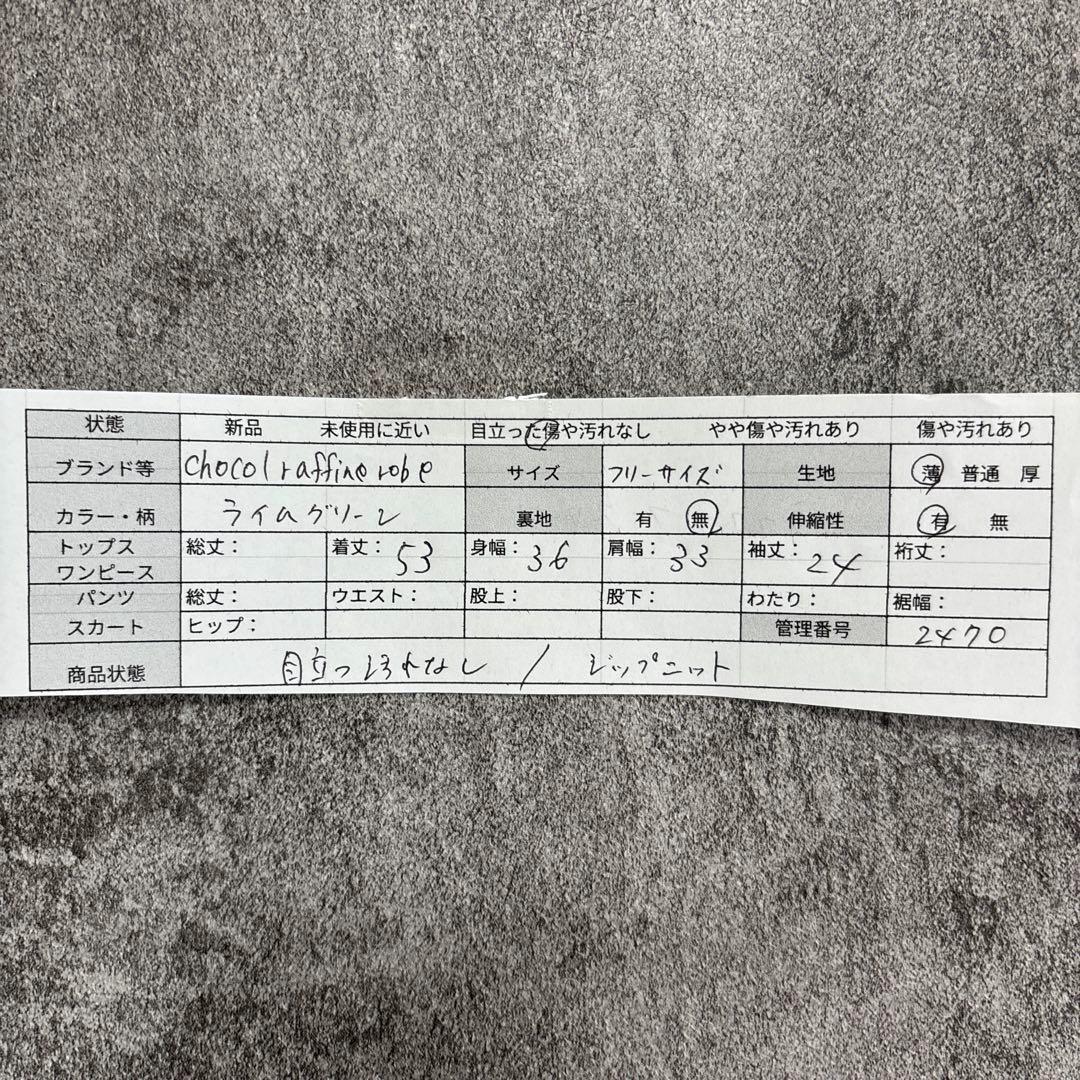 状態 新品 未使用に近い 目立った傷や汚れなし やや傷や汚れあり 傷や汚れあり
ブランド等 chocol raffine robe サイズ フリーサイズ 生地 薄 普通 厚
カラー・柄 ライムグリーン 裏地 有 無 伸縮性 有 無
トップス ワンピース 総丈: 着丈: 53 身幅: 36 肩幅: 33 袖丈: 24 裄丈:
パンツ 総丈: ウエスト: 股上: 股下: わたり: 裾幅:
スカート ヒップ: 管理番号 2470
商品状態 目立つ汚れなし / ジップニット